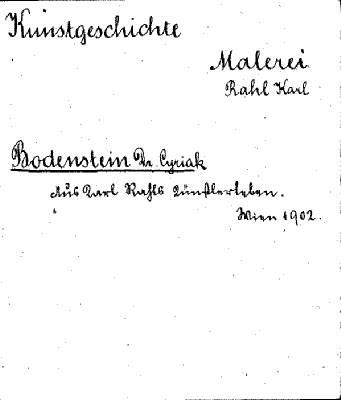 Kunstgeschichte
Malerei
Rahl Karl
Bodenstein Dr. Cyriak
Aus Carl Rahls Künstlerleben.
Wien 1902.